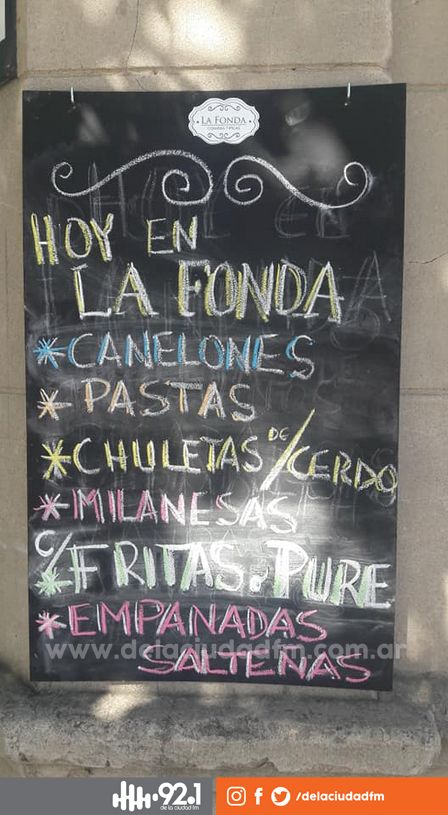 LA FONDA
COMIDAS TIPICAS
HOY EN
LA FONDA
* CANELONES
* PASTAS
* CHULETAS DE/CERDO
* MILANESAS
C/FRITAS o PURE
* EMPANADAS
SALTEÑAS
www.delaciudadfm.com.ar
92.1
de la ciudad·fm
/delaciudadfm